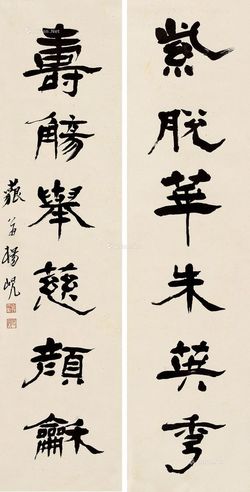 紫脫華朱英秀
壽觴舉慈顏龢
藐翁楊峴